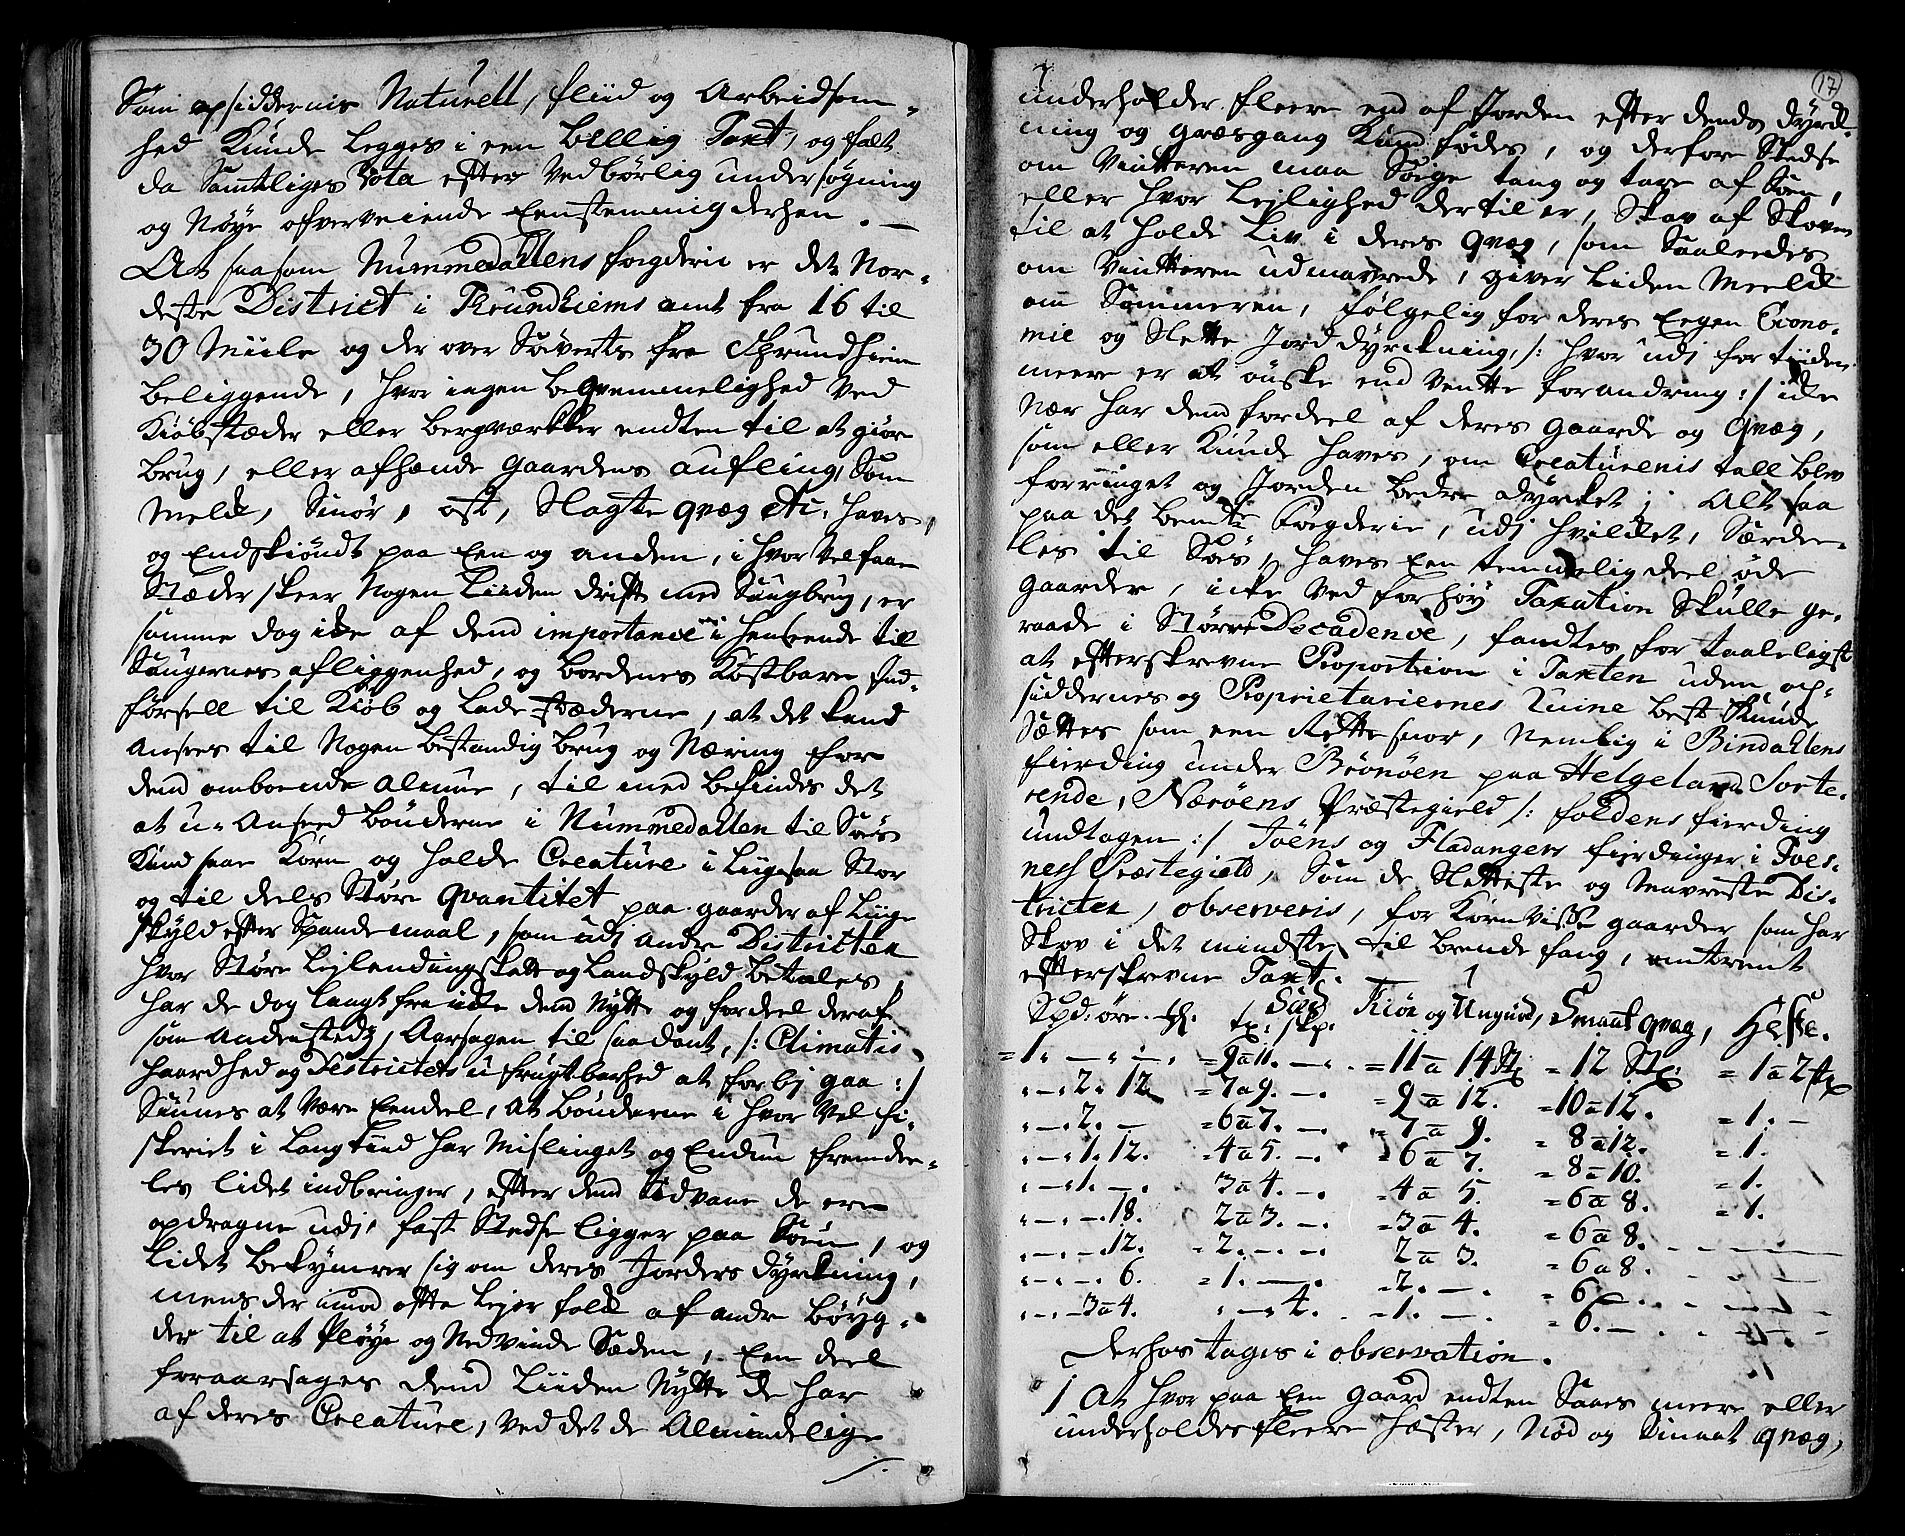 Som opsiddernis Naturell, fliid og Arbeidsom-
hed Kunde Legges i een billig Taxt, og falt
da Samtliges Vota efter Vedbørlig undersøgning
og Nøye ofverveiende Eenstemmig derhen. —
At saasom Nummedallens fogderie er det Nor-
deste District i Thrundhiems amt fra 16 til
30 Miile og der over Søverts fra Thrundhiem
beliggende, hvor ingen beqvemmelighed ved
Kiøbstæder eller bergværker endten til at giøre
brug, eller afhænde gaardens aufling, Som
Melk, Smør, ost, Slagte qvæg etc: haves,
og Endskiøndt paa Een og anden, i hvor vel faae
Stæder skeer Nogen Liiden drift med Saugbrug, er
samme dog icke af dend importance i henseende til
Saugernes afliggenhed, og bordenes Kostbare ind-
førsell til Kiøb og Ladestæderne, at det kand
Ansees til Nogen bestandig brug og Næring for
dend omboende almue, til med befindes det
at u-Anseed bønderne i Nummedallen til Søes
Kand saae Korn og holde Creature i Liigesaa Stor
og til deels Støre Qvantitet paa gaarder af Liige
skyld efter Spandemaal, som udj andre Districter
hvor Støre Leylendingskatt og Landskyld betales,
har de dog langt fra icke dend Nytte og fordeel deraf
som andenstedz, Aarsagen til saadant, /: Climatis
haardhed og Districtets ufrugtbarhed at forbj gaa :/
Siunes at være Eendeel, at bønderne i hvor vel fi-
skeriet i Lang tiid har Mislinget og Endnu fremdee-
les lidet indbringer, efter dend Sædvane de ere
opdragne udj, fast Stedse ligger paa Søen, og
lidet bekymrer sig om deres Jorders dyrkning,
mens der imod ofte Lejer folk af andre bøyg-
der til at Pløye og Nedvinde Sæden, Een deel
foraarsages dend Liiden Nytte de har
af deres Creature, ved det de Almindelige
17
underholder fleere end af Jorden efter dends dyrck-
ning og græsgang Kand fødes, og derfore Stedse
om Vinteren maa Søge tang og tare af Søen,
eller hvor Lejlighed dertil er, Skav af Skoven
til at holde Liv i deres qvæg, som Saaleedes
om Vinteren udmavrede, giver Liden Meelk
om Sommeren, følgelig for deres Eegen Economie
mie og Slette Jord dyrckning, /: hvor udj for tiiden
meere er at ønske end vente forandring :/ icke
Nær har dend fordeel af deres gaarde og qvæg,
som eller Kunde haves, om Creaturenis tall blev
forringet og Jorden bedre dyrcket; Alt saa
paa det bemte Fogderie, udj hvilcket, Særdee-
les til Søes, haves Een temmelig deel øde
gaarder, icke ved for høy Taxation Skulle ge-
raade i Større Decadence, fandtes for taaleligst
at efterskrevne Proportion i Taxten uden op-
siddernes og Proprietariernes Ruine best Kunde
Sættes som een Rettesnor, Nemlig i Bindallens
fierding under Brønøen paa Helgeland Sorte-
rende, Nærøens Præstegield /: foldens fierding
undtagen :/ Joëns og Fladangers fierdinger i Foes-
ness Præstegield, Som de Sletteste og Mavreste Dis-
tricter, observeris, for Kornvisse gaarder som har
Skov i det mindste til brende fang, omtrent
efterskrevne Taxt.
Spd: øre. . Sæd tr: skp. Kiør og Ungnød, Smaat qvæg, Heste.
= 1. — . — . = 9 a 11. — . = 11 a 14 Stk = 12 Stk: = 1 a 2 Stk
" — 2. 12 = 7 a 9. — . = 9 a 12. = 10 a 12. = 1. —
" — 2. — = 6 a 7. — . = 7 a 9. = 8 a 12. = 1.
" — 1. 12. = 4 a 5. — . = 6 a 7. = 8 a 10. = 1.
" — 1. — . 3 a 4. — . = 4 a 5. = 6 a 8. = 1.
" — " — 18. 2 a 3. — . = 3 a 4. = 6 a 8.
" — " — 12. = 2. — . — . 2 a 3. = 6 a 8.
" — " — 6. = 1. — . = 2. — . = 6. — .
" — " — 3 a 4. " — " 4. = 1. — . = 6. — .
Derhos tages i observation.
/ At hvor paa Een gaard endten Saaes meere eller
underholdes fleere Hæster, Nød og Smaat qvæg,